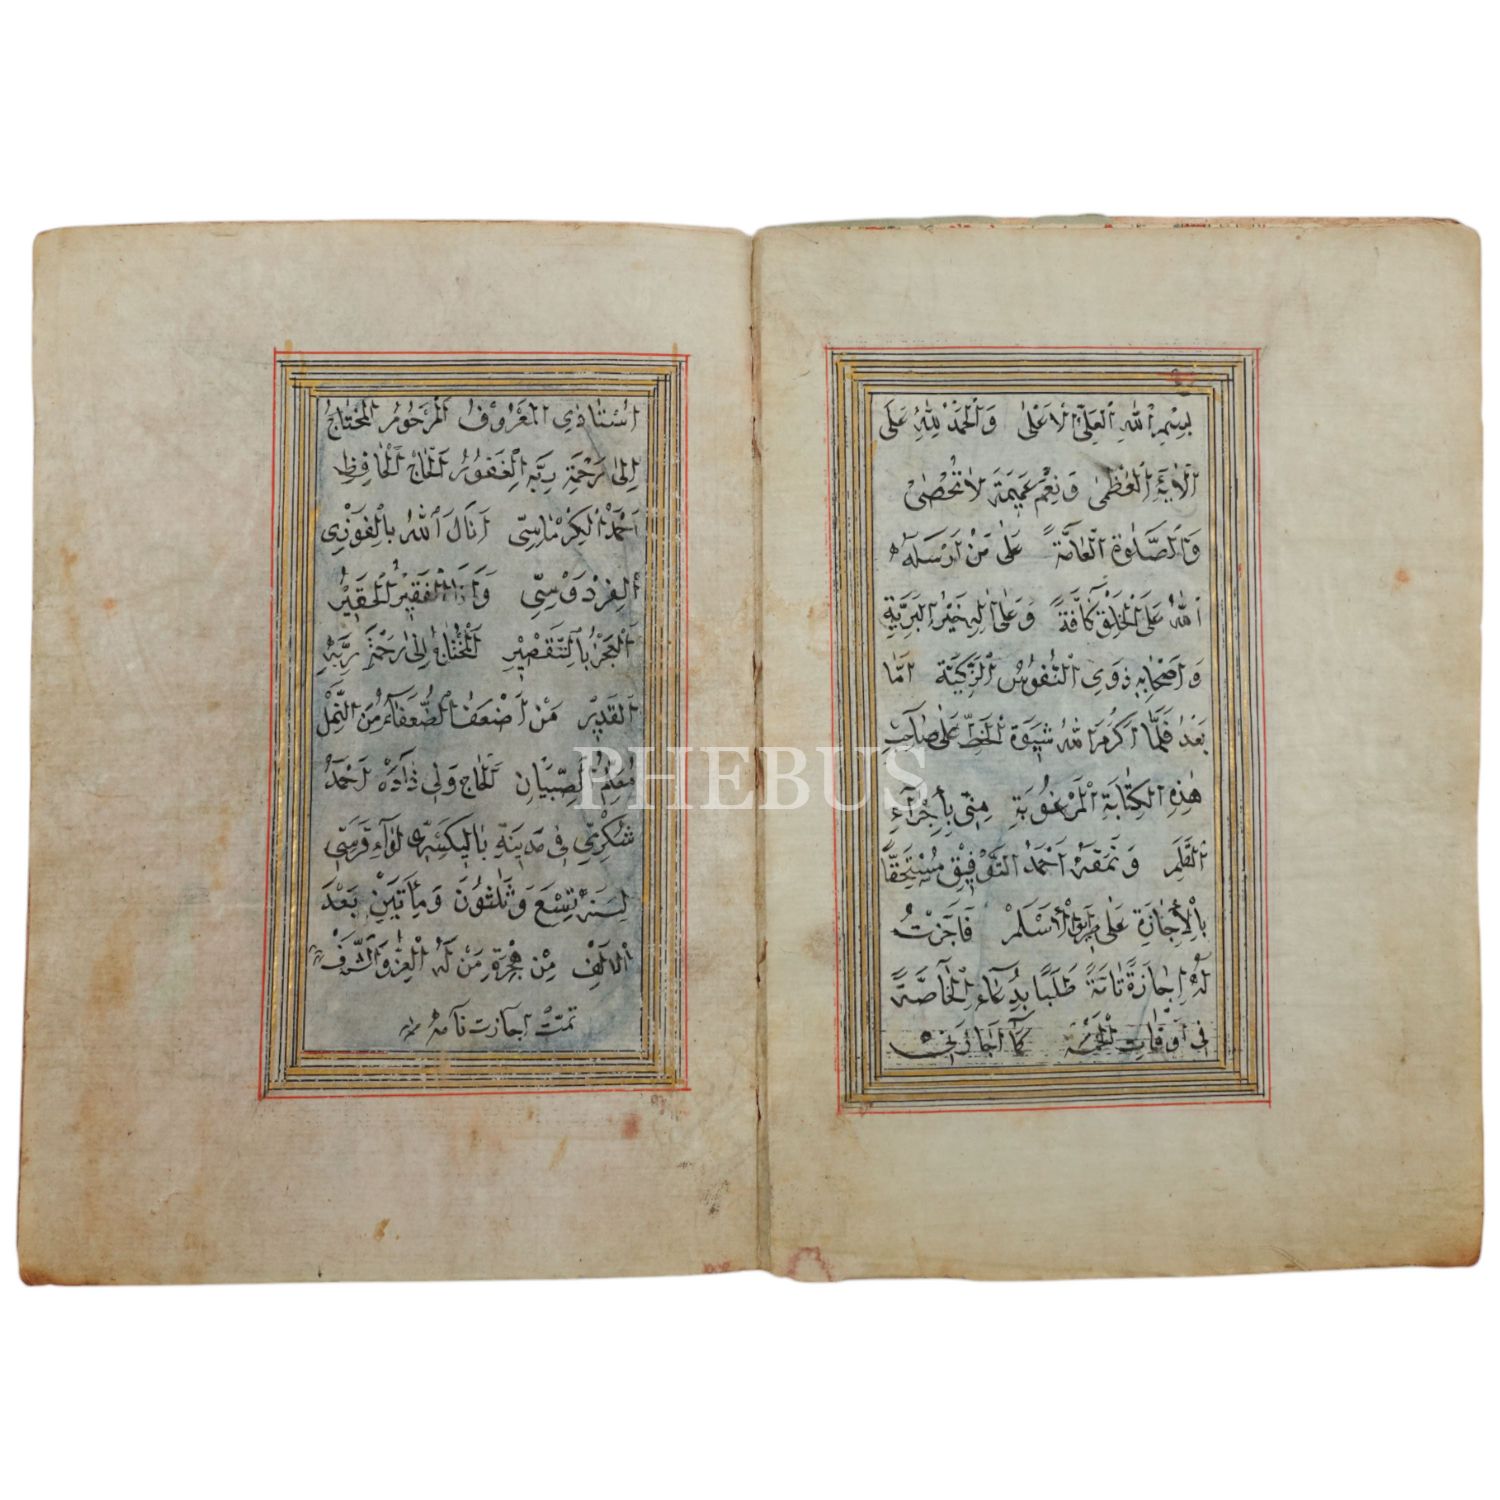 بِسْمِ اللهِ الْعَلِيِّ الْاَعْلٰى وَالْحَمْدُ لِلّٰهِ عَلٰى
اٰلَائِهِ الْعُظْمٰى وَنِعَمٍ عَمِيمَةٍ لَا تُحْصٰى
وَالصَّلٰوةِ الْعَامَّةِ عَلٰى مَنْ اَرْسَلَهُ
اللهُ عَلَى الْخَلْقِ كَافَّةً وَعَلٰى اٰلِهِ خَيْرِ الْبَرِيَّةِ
وَاَصْحَابِهِ ذَوِي النُّفُوسِ الزَّكِيَّةِ اَمَّا
بَعْدُ فَلَمَّا اَكْرَمَ اللهُ شِيوَةَ الْخَطِّ عَلٰى صَاحِبِ
هٰذِهِ الْكِتَابَةِ الْمَرْغُوبَةِ مِنِّي بِاِجْرَاءِ
الْقَلَمِ وَنَمَّقَهُ اَحْمَدُ التَّوْفِيقِ مُسْتَحِقًّا
بِالْاِجَازَةِ عَلٰى طَرِيقِ الْاَسْلَمِ فَاَجَزْتُ
لَهُ اِجَازَةً تَامَّةً طَلَبًا بِدُعَاءِ الْخَاصَّةِ
فِي اَوْقَاتِ كَمَا اَجَازَنِي
اُسْتَاذِي الْمَعْرُوفُ الْمَرْحُومُ الْمُحْتَاجُ
اِلٰى رَحْمَةِ رَبِّهِ الْغَفُورُ الْحَاجُّ الْحَافِظُ
اَحْمَدُ الْكِرْمَاسِيِّ اَنَالَ اللهُ بِالْفَوْزِي
الْفِرْدَوْسِيِّ وَاَنَا الْفَقِيرُ الْحَقِيرُ
الْعَجْزُ بِالتَّقْصِيرِ الْمُحْتَاجُ اِلٰى رَحْمَةِ رَبِّهِ
الْقَدِيرِ مَنْ اَضْعَفُ الضُّعَفَاءِ مِنَ النَّمْلِ
مُعَلِّمُ الصِّبْيَانِ الْحَاجّ وَلِي زَادَهْ اَحْمَدُ
شُكْرِي فِي مَدِينَةِ بَالِيكَسْرِي لِوَاءِ قَرَسِي
لِسَنَةِ تِسْعَ وَثَلٰثُونَ وَمِأَتَيْنِ بَعْدَ
الْاَلْفِ مِنْ هِجْرَةِ مَنْ لَهُ الْعِزُّ وَالشَّرَفُ
تمت اجازت نامه
PHEBUS